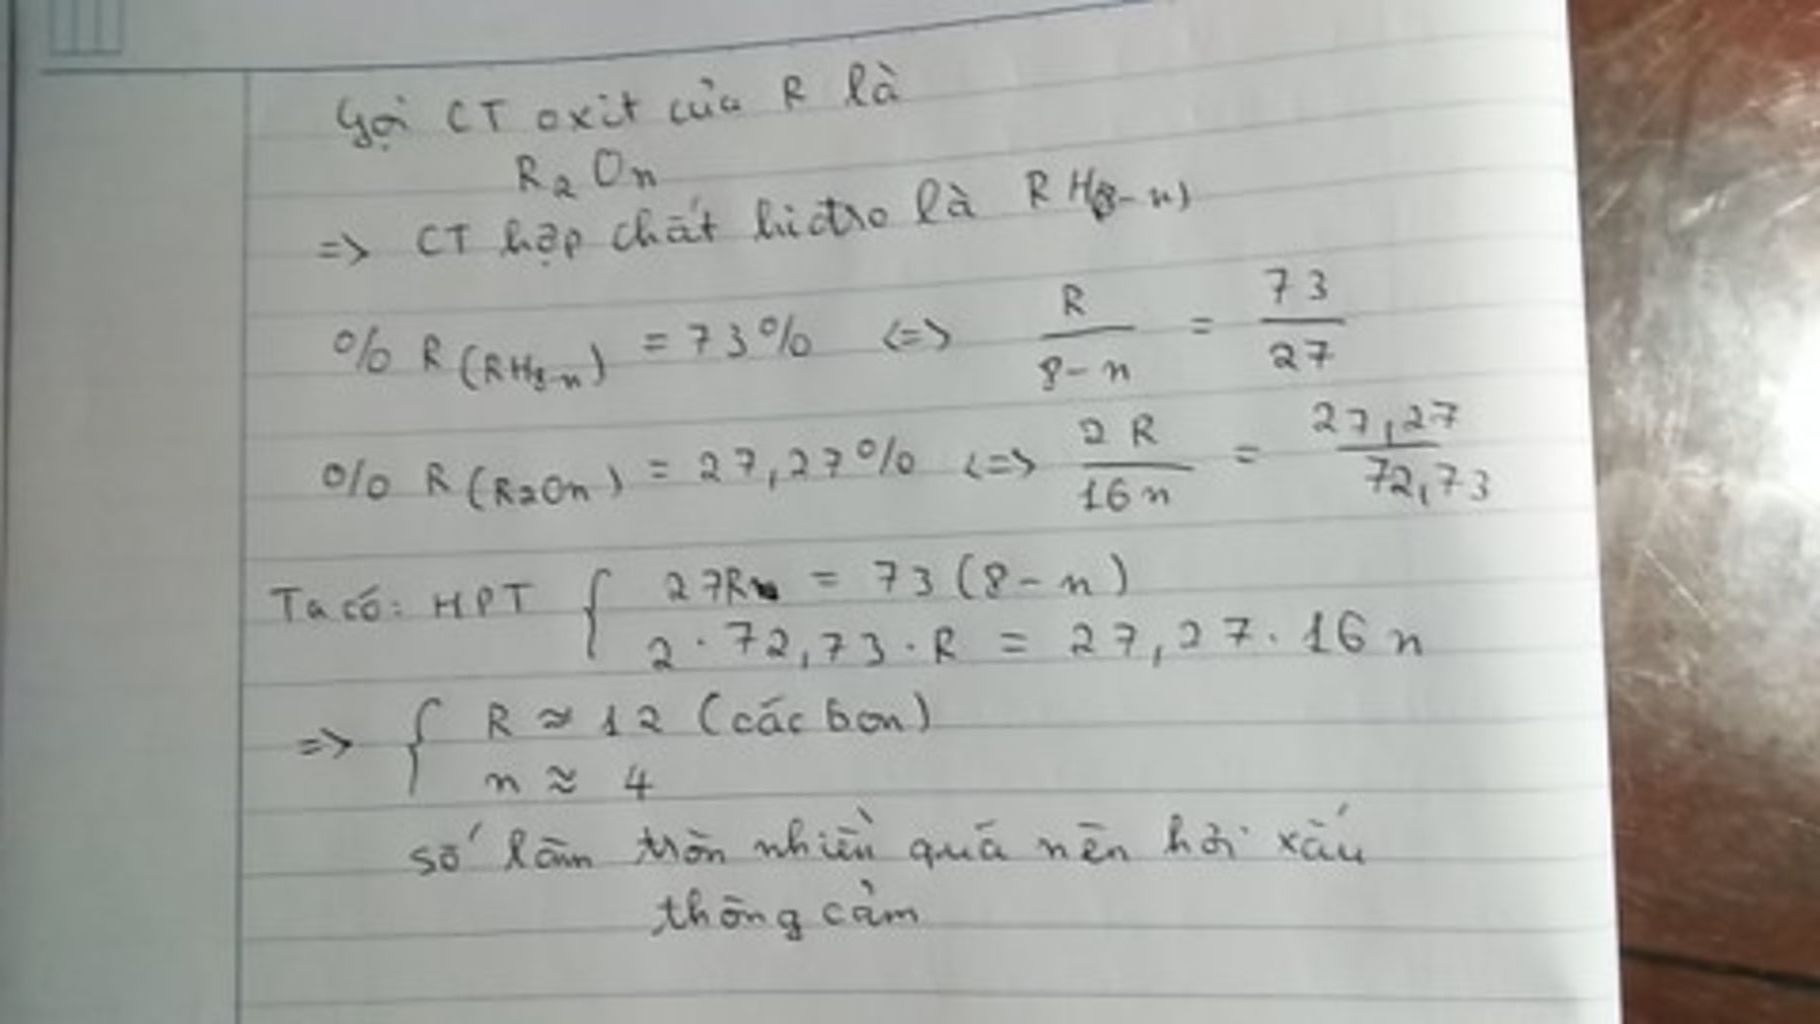 Gọi CT oxit của R là
R₂On
=> CT hợp chất hiđro là RH(8-n)
% R (RH8-n) = 73% <=> R / 8-n = 73 / 27
% R (R₂On) = 27,27% <=> 2R / 16n = 27,27 / 72,73
Ta có: HPT { 27R = 73(8-n)
2 · 72,73 · R = 27,27 · 16n
=> { R ≈ 12 (các bon)
n ≈ 4
số làm tròn nhiều quá nên hơi xấu
thông cảm